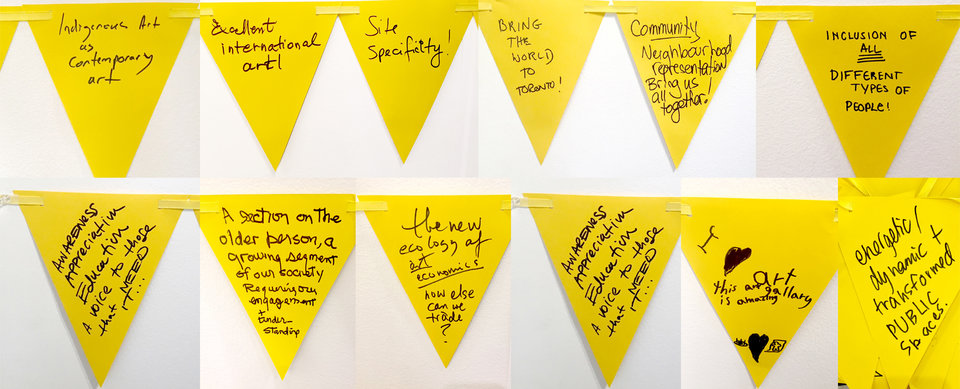 Indigenous Art
as
Contemporary
art
Excellent
international
art!
Site
Specificity!
BRING
THE
WORLD
TO
TORONTO!
Community
Neighbourhood
representation
Bring us
all
together!
INCLUSION OF
ALL
DIFFERENT
TYPES OF
PEOPLE!
AWARENESS
Appreciation
Education
A voice to those
that NEED
IT...
A section on the
older person, a
growing segment
of our society
Requiring our
engagement
+
under-
standing
the new
ecology of
art
economics
how else
can we
trade
?
AWARENESS
Appreciation
Education
A voice to those
that NEED
IT...
I
art
this art gallary
is amazing
energetic/
dynamic +
transformed
PUBLIC
spaces.